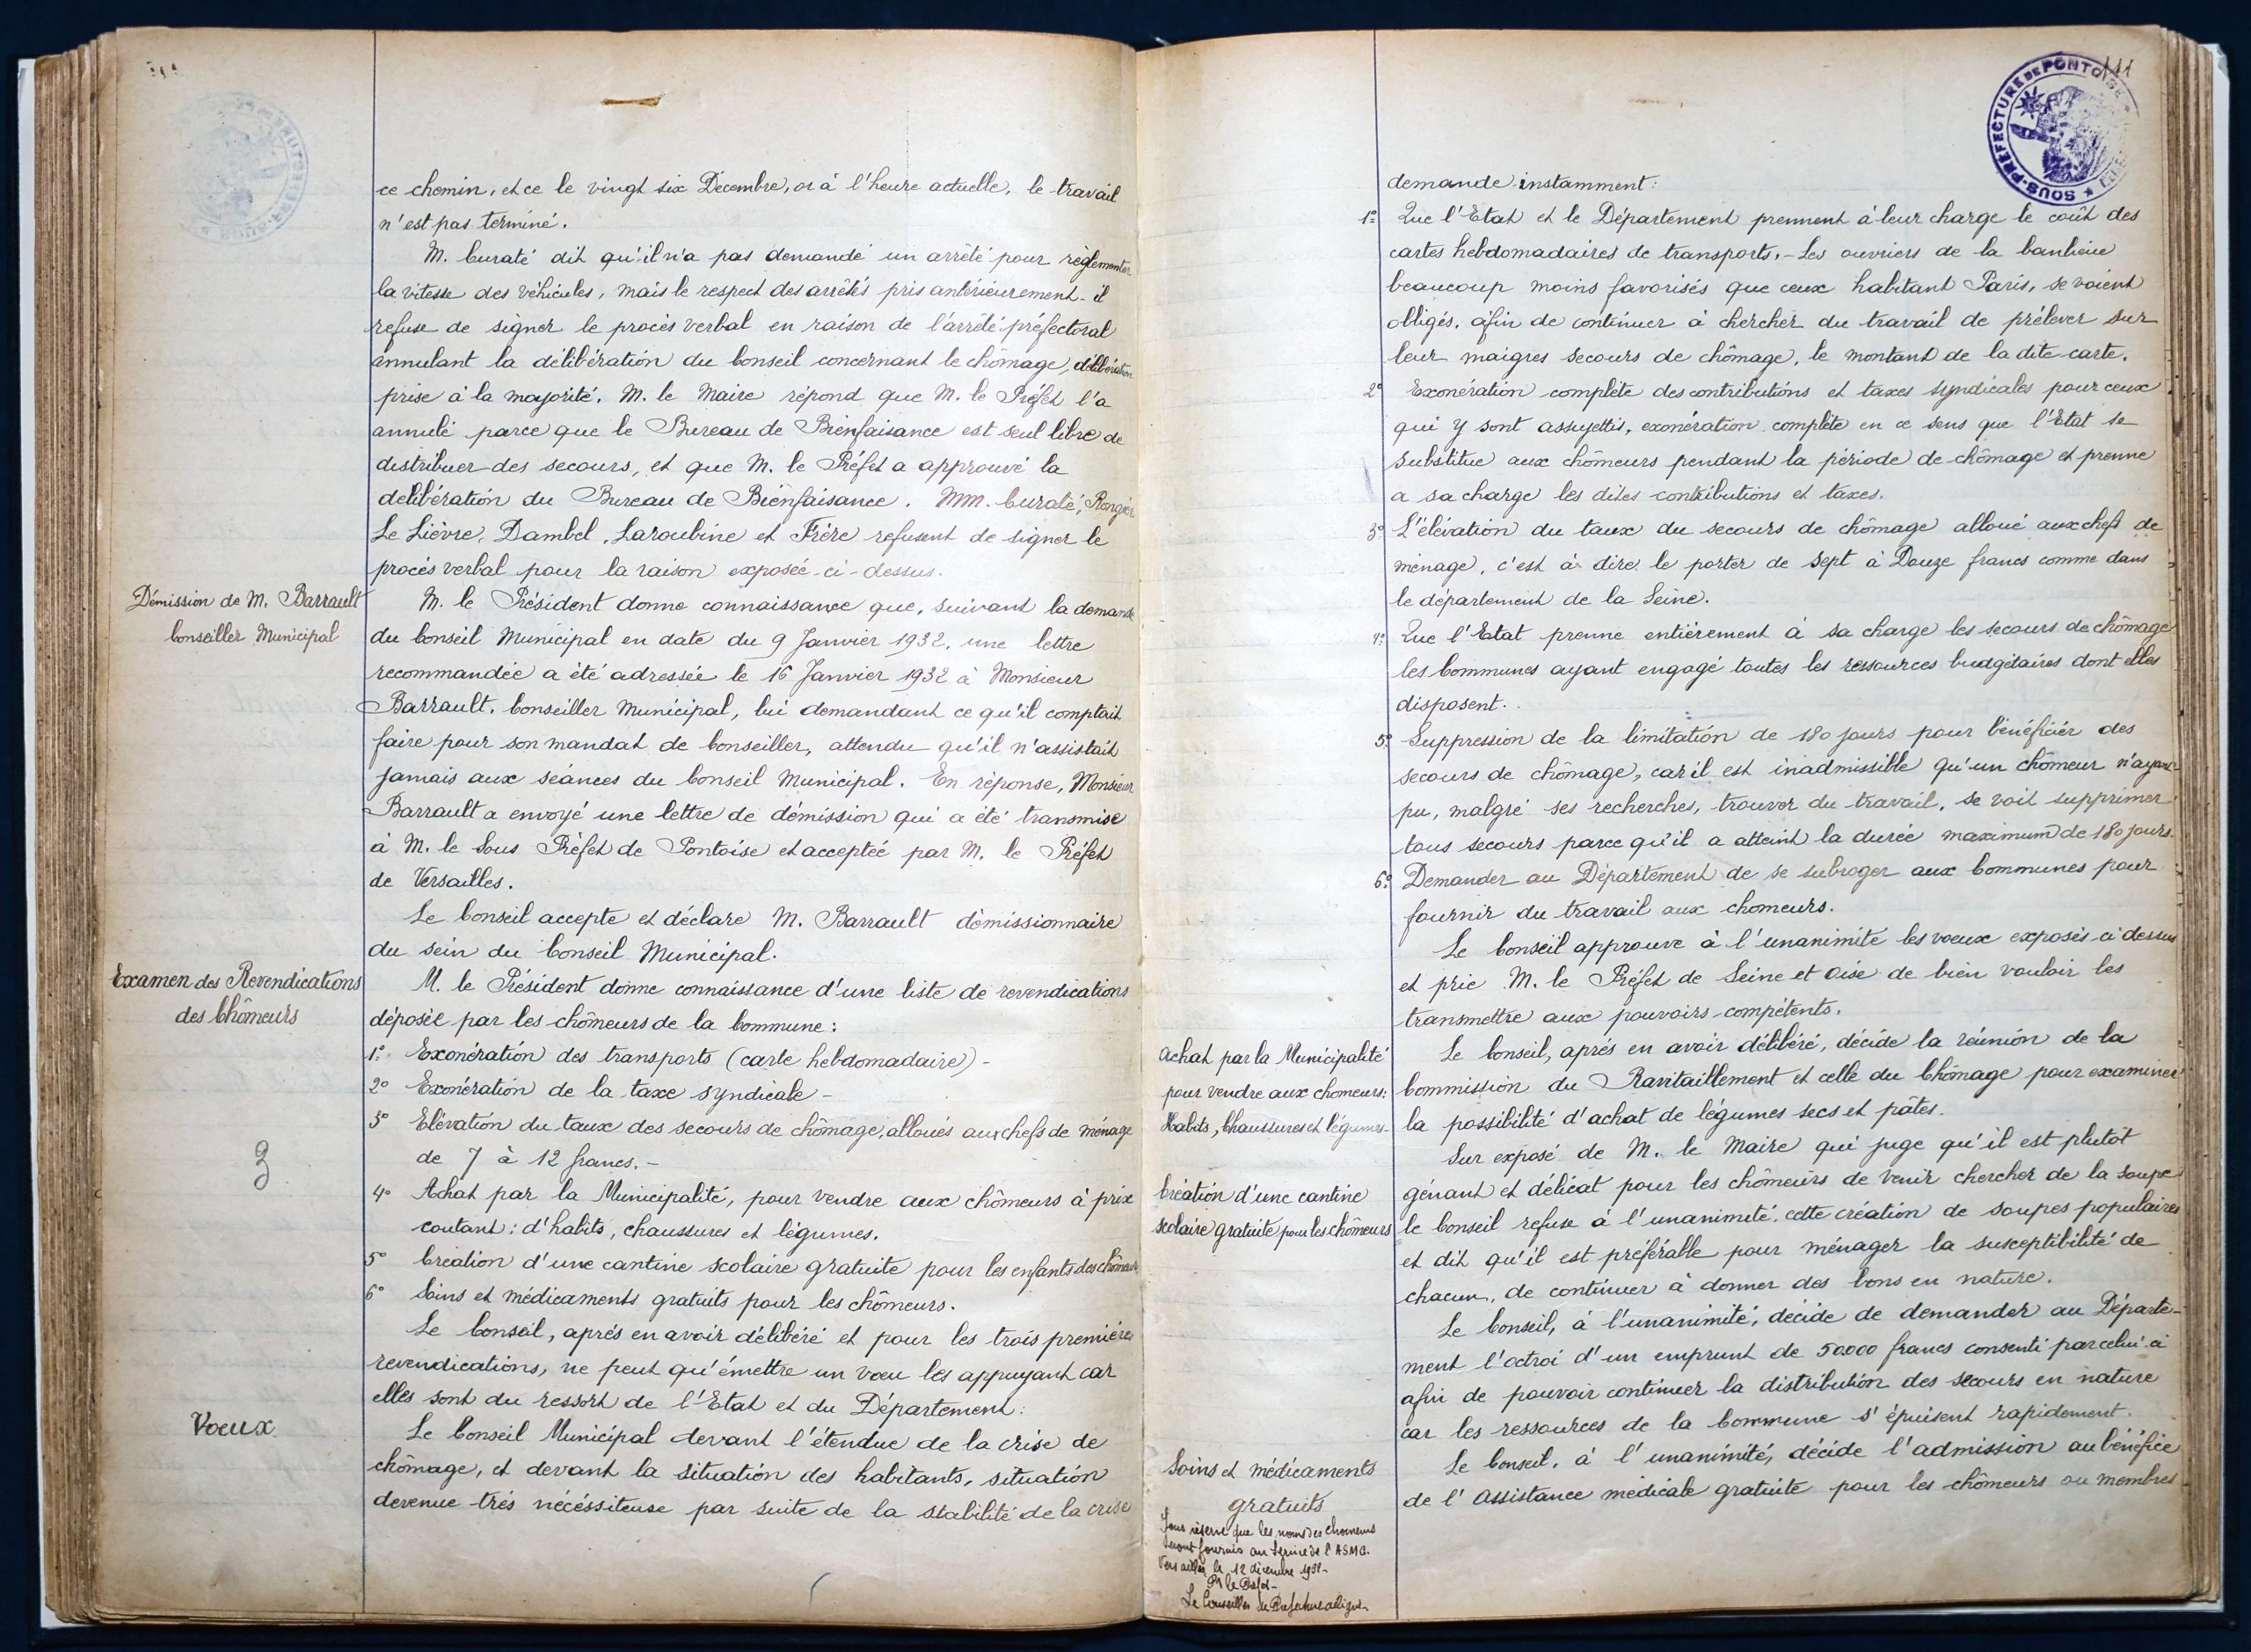 ce chemin, et ce le vingt six Décembre, or à l'heure actuelle, le travail
n'est pas terminé.
M. Curaté dit qu'il n'a pas demandé un arrêté pour règlementer
la vitesse des véhicules, mais le respect des arrêtés pris antérieurement - il
refuse de signer le procès verbal en raison de l'arrêté préfectoral
annulant la délibération du Conseil concernant le chômage, délibération
prise à la majorité. M. le Maire répond que M. le Préfet l'a
annulé parce que le Bureau de Bienfaisance est seul libre de
distribuer des secours, et que M. le Préfet a approuvé la
delibération du Bureau de Bienfaisance. MM. Curaté,
Le Lièvre, Dambel, Laroubine et Frère refusent de signer le
procès verbal pour la raison exposée ci-dessus.
Démission de M. Barrault
Conseiller Municipal
M. le Président donne connaissance que, suivant la demande
du Conseil Municipal en date du 9 Janvier 1932, une lettre
recommandée a été adressée le 16 Janvier 1932 à Monsieur
Barrault, Conseiller Municipal, lui demandant ce qu'il comptait
faire pour son mandat de Conseiller, attendu qu'il n'assistait
jamais aux séances du Conseil Municipal. En réponse, Monsieur
Barrault a envoyé une lettre de démission qui a été transmise
à M. le Sous Préfet de Pontoise et acceptée par M. le Préfet
de Versailles.
Le Conseil accepte et déclare M. Barrault démissionnaire
du sein du Conseil Municipal.
Examen des Revendications
des Chômeurs
M. le Président donne connaissance d'une liste de revendications
déposée par les chômeurs de la Commune :
1° Exonération des transports (carte hebdomadaire) -
2° Exonération de la taxe syndicale -
3° Elévation du taux des secours de chômage, alloués aux chefs de ménage
de 7 à 12 francs. -
4° Achat par la Municipalité, pour vendre aux chômeurs à prix
coutant : d'habits, chaussures et légumes.
5° Création d'une cantine scolaire gratuite pour les enfants des chômeurs
6° Soins et médicaments gratuits pour les chômeurs.
Le Conseil, après en avoir délibéré et pour les trois premières
revendications, ne peut qu'émettre un voeu les appuyant car
elles sont du ressort de l'Etat et du Département :
Voeux
Le Conseil Municipal devant l'étendue de la crise de
chômage, et devant la situation des habitants, situation
devenue très nécéssiteuse par suite de la stabilité de la crise
111
SOUS-PRÉFECTURE DE PONTOISE
demande instamment :
1° Que l'Etat et le Département prennent à leur charge le coût des
cartes hebdomadaires de transports. - Les ouvriers de la banlieue
beaucoup moins favorisés que ceux habitant Paris, se voient
obligés, afin de continuer à chercher du travail de prélever sur
leur maigres secours de chômage, le montant de la dite carte.
2° Exonération complète des contributions et taxes syndicales pour ceux
qui y sont assujettis, exonération complète en ce sens que l'Etat se
substitue aux chômeurs pendant la période de chômage et prenne
a sa charge les dites contributions et taxes.
3° L'élévation du taux du secours de chômage alloué aux chefs de
ménage, c'est à dire le porter de sept à Douze francs comme dans
le département de la Seine.
4° Que l'Etat prenne entièrement à sa charge les secours de chômage
les Communes ayant engagé toutes les ressources budgétaires dont elles
disposent.
5° Suppression de la limitation de 180 jours pour bénéficier des
secours de chômage, car il est inadmissible qu'un chômeur n'ayant
pu, malgré ses recherches, trouver du travail, se voit supprimer
tous secours parce qu'il a atteint la durée maximum de 180 jours.
6° Demander au Département de se subroger aux Communes pour
fournir du travail aux chomeurs.
Le Conseil approuve à l'unanimité les voeux exposés ci dessus
et prie M. le Préfet de Seine et Oise de bien vouloir les
transmettre aux pouvoirs compétents.
Achat par la Municipalité
pour vendre aux chomeurs :
Habits, Chaussures et légumes -
Le Conseil, après en avoir délibéré, décide la réunion de la
Commission du Ravitaillement et celle du Chômage pour examiner
la possibilité d'achat de légumes secs et pâtes.
Création d'une cantine
scolaire gratuite pour les chômeurs
Sur exposé de M. le Maire qui juge qu'il est plutôt
gênant et délicat pour les chômeurs de venir chercher de la soupe
le Conseil refuse à l'unanimité cette création de soupes populaires
et dit qu'il est préférable pour ménager la susceptibilité de
chacun, de continuer à donner des bons en nature.
Le Conseil, à l'unanimité, décide de demander au Départe-
ment l'octroi d'un emprunt de 50.000 francs consenti par celui-ci
afin de pouvoir continuer la distribution des secours en nature
car les ressources de la Commune s'épuisent rapidement.
Soins et médicaments
gratuits
Sous réserve que les noms des chomeurs
seront fournis au service de l'ASMG.
Versailles, le 12 décembre
Pr le Préfet -
Le Conseiller de Préfecture délégué -
Le Conseil, à l'unanimité, décide l'admission au bénéfice
de l'Assistance médicale gratuite pour les chômeurs ou membres